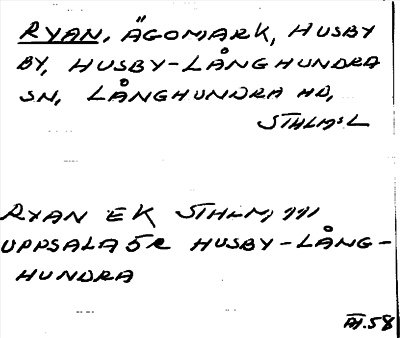 RYAN, ÄGOMARK, HUSBY
BY, HUSBY-LÅNGHUNDRA
SN, LÅNGHUNDRA HD,
STHLMS L
RYAN EK STHLM, 111
UPPSALA 5R HUSBY-LÅNG-
HUNDRA
.58